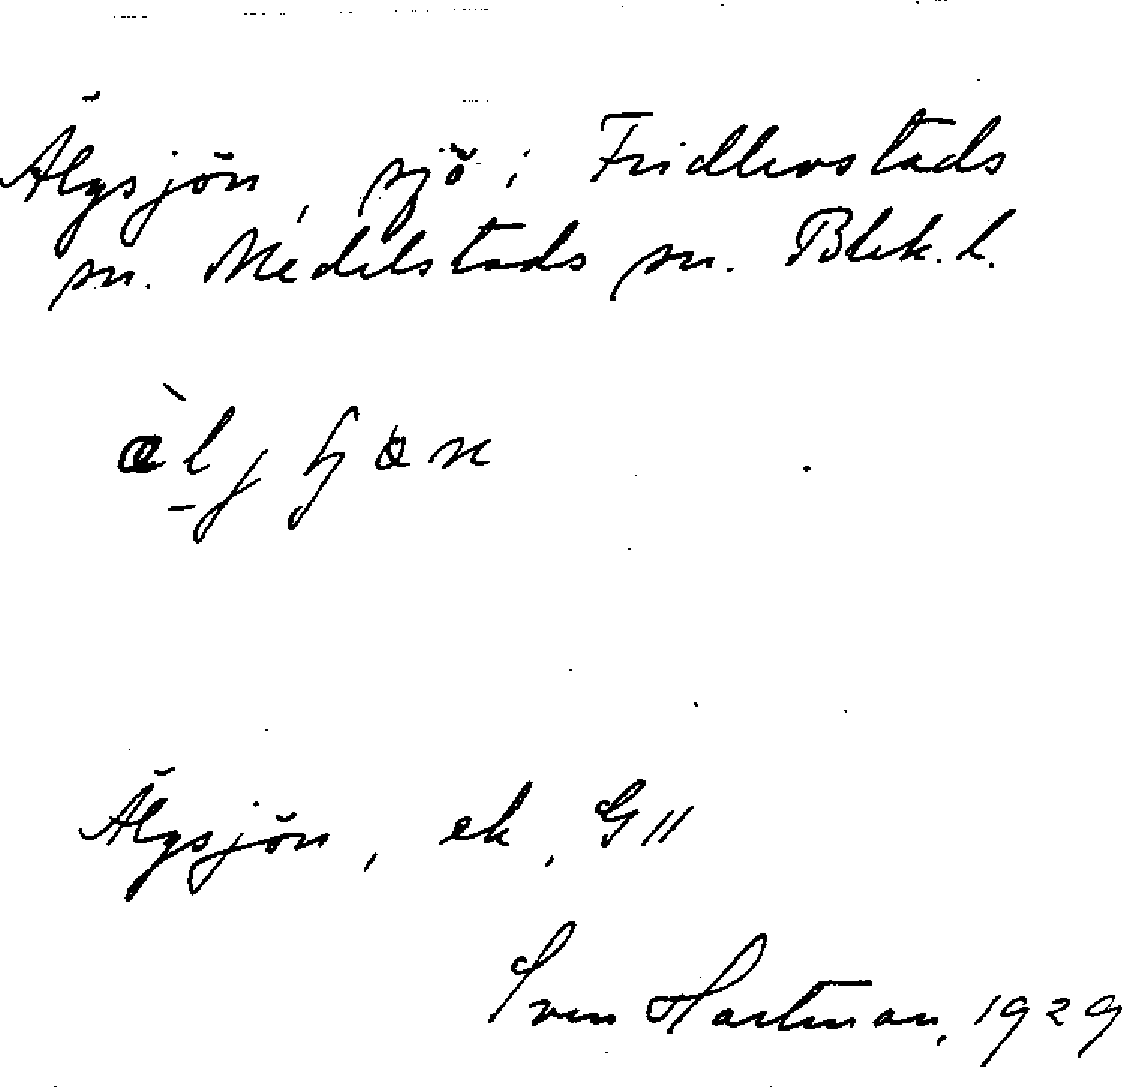 Älgsjön, sjö i Fridlevstads
sn. Medelstads sn. Blek. l.
Älgsjön, ek, G11
Sven Hartman, 1929